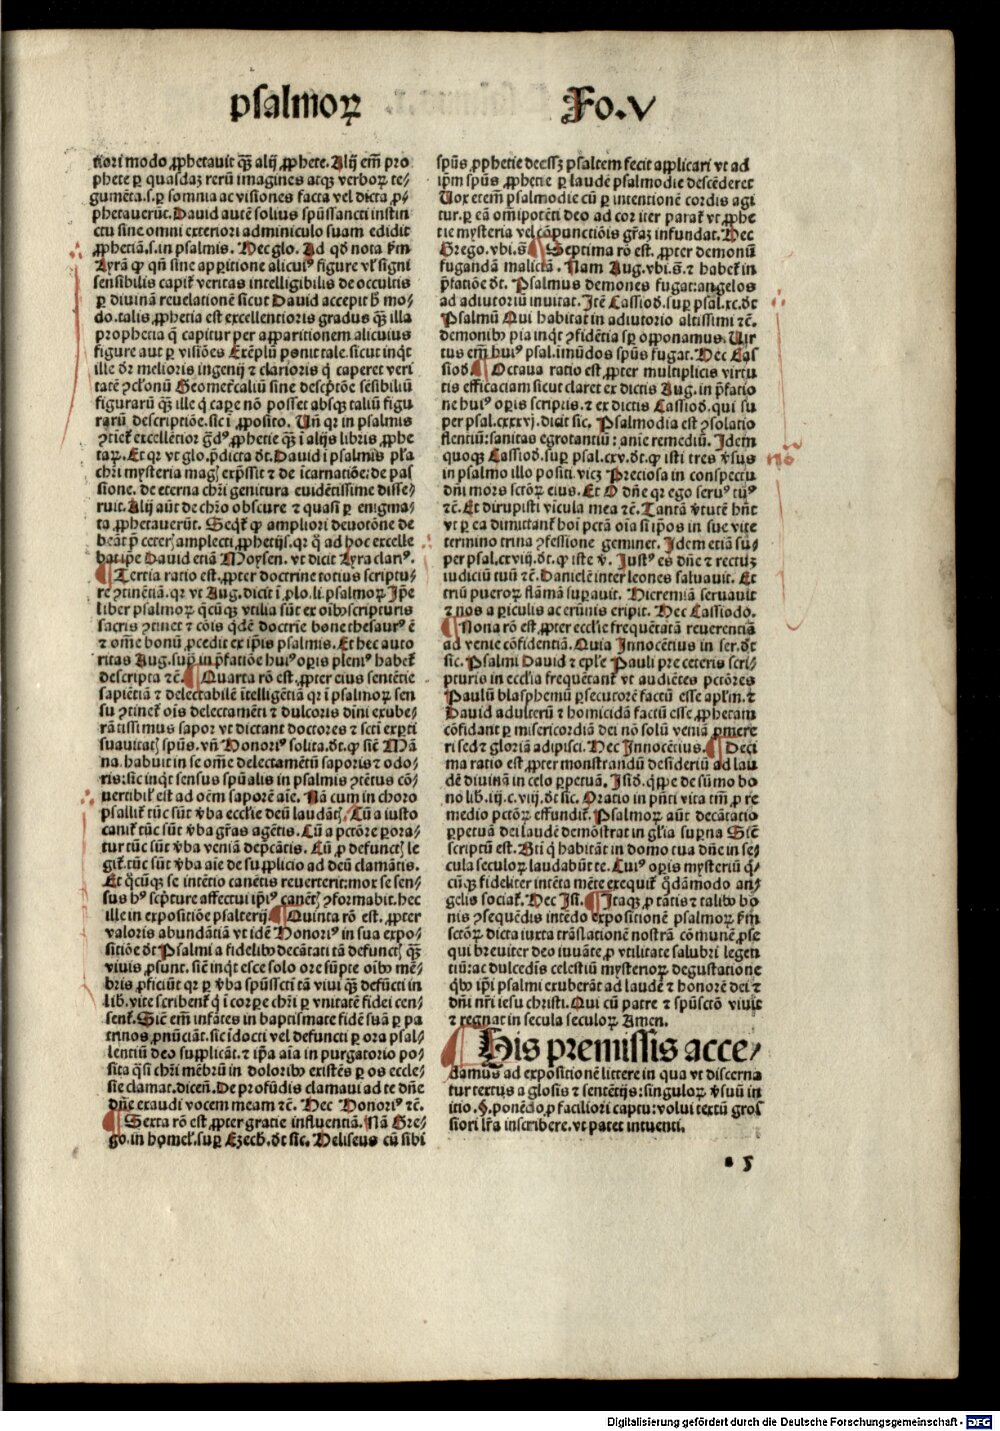 psalmoꝝ
Fo.V
tiori modo ꝓphetauit qͣꝫ alij ꝓphete. Alij em̃ pro
phete ꝑ quasdaꝫ rerū imagines atqꝫ verboꝝ te⸗
gumēta.s.ꝑ somnia ac visiones facta vel dicta ꝓ⸗
phetauerūt. Dauid autē solius spūssancti instin
ctu sine omni exteriori adminiculo suam edidit
ꝓphetiā.s.in psalmis. Hec glo. Ad qđ nota ẜm
Lyrā ꝙ qn̄ sine apꝑitione alicuiꝰ figure vl̓ signi
sensibilis capit᷑ veritas intelligibilis de occultis
ꝑ diuinā reuelationē sicut Dauid accepit ħ mo⸗
do.talis ꝓphetia est excellentioris gradus qͣꝫ illa
prophetia q̄ capitur per apparitionem alicuius
figure aut ꝑ visiōes Exēplū ponit tale.sicut inqͥt
ille dr̄ melioris ingenij ⁊ clarioris qͥ caperet veri
tatē ꝯclonū Geometͥcaliū sine descͥptōe sēsibiliū
figurarū qͣꝫ ille qͥ caꝑe nō posset absqꝫ taliū figu
rarū descriptiōe.sic ī ꝓposito. Vn̄ qr in psalmis
ꝯtinet᷑ excellētior gͣdꝰ ꝓphetie qͣꝫ ī alijs libris ꝓphe
taꝝ. Et qr vt glo.p̄dicta dt. Dauid ī psalmis pl̓a
chr̄i mysteria magͥ exp̄ssit ⁊ de īcarnatiōe: de pas
sione. de eterna chr̄i genitura euidētissime disse⸗
ruit. Alij aūt de chr̄o obscure ⁊ quasi ꝑ enigma⸗
ta ꝓphetauerūt. Seqͥt᷑ ꝙ ampliori deuotōne de
beāt p̄ ceteris amplecti ꝓphetijs.qr qͥ ad hoc excelle
bat ip̄e Dauid etiā Moysen. vt dicit Lyra clarꝰ.
¶ Tertia ratio est.ꝓpter doctrine totius scriptu⸗
re ꝯtinētiā. qr vt Aug.dicit ī ꝓlo.li.psalmoꝝ Ip̄e
liber psalmoꝝ qͥcūqꝫ vtilia sūt ex oībꝰ scripturis
sacris ꝯtinet ⁊ cōis qͥdē doctrīe bone thesaurꝰ ē
⁊ om̄e bonū ꝓcedit ex ip̄is psalmis. Et hec aucto
ritas Aug.supͥ in p̄fatiōe huiꝰ oꝑis pleniꝰ habet᷑
descripta ⁊c̄. ¶ Quarta rō est.ꝓpter eius sentētie
sapiētiā ⁊ delectabilē ītelligētiā qr ī psalmoꝝ sen
su ꝯtinet᷑ oīs delectamēti ⁊ dulcoris dīni exube⸗
rātissimus sapor vt dictant doctores ⁊ scti exꝑti
suauitatis spūs. vn̄ Honoriꝰ solita.dt.ꝙ sicē Mā
na.habuit in se om̄e delectamētū saporis ⁊ odo⸗
ris: sic inqͥt sensus spūalis in psalmis ꝯtētus cō⸗
uertibilꝭ est ad oēm saporē aīe. Nā cum in choro
psallit᷑ tūc sūt v̓ba ecclīe deū laudātis. Cū a iusto
canit᷑ tūc sūt v̓ba gr̄as agētis. Cū a pctōre ꝑora⸗
tur tūc sūt v̓ba veniā dep̄cātis. Cū ꝓ defunctis le
git᷑.tūc sūt v̓ba aīe de suꝓplicio ad deū clamātis.
Et qͥcūqꝫ se intētio canētis reuerterit: mox se sen⸗
sus hꝰ scͥpture affectui ip̄iꝰ canētis ꝯformabit.hec
ille in expositiōe psalterij. ¶ Quinta rō est. ꝓpter
valoris abundātiā vt idē Honoriꝰ in sua expo⸗
sitiōe dt Psalmi a fidelibꝰ decātati tā defunctis qͣꝫ
viuis ꝓsunt. sicē inqͥt esce solo ore sūpte oībꝰ mē⸗
bris ꝓficiūt qr ꝑ v̓ba spūsscti tā viui qͣꝫ defūcti in
lib.vite scribent᷑ qͥ ī corꝑe chr̄i ꝑ vnitatē fidei cen⸗
sent᷑. Sicē em̄ infātes in baptismate fidē suā ꝑ pa
trinos ꝓnūciāt.sic īdocti vel defuncti ꝑ ora psal⸗
lentiū deo supplicāt. ⁊ ip̄a aīa in purgatorio po⸗
sita qͣsi chr̄i mēbrū in doloribꝰ existēs ꝑ os eccle⸗
sie clamat.dicēs. De profūdis clamaui ad te dn̄e
dn̄e exaudi vocem meam ⁊c̄. Hec Honoriꝰ ⁊c̄.
¶ Sexta rō est ꝓpter gratie influentiā. Nā Gre⸗
go.in homel̓.suꝑ Ezech.dt sic. Heliseus cū sibi
spūs ꝓphetie deessꝫ psaltem fecit applicari vt ad
ip̄m spūs ꝓphetie ꝑ laudē psalmodie descēderet
Vox etem̄ psalmodie cū ꝑ intentionē cordis agi
tur.ꝑ eā om̄ipotēti deo ad cor iter parat᷑ vt ꝓphe
tie mysteria vel cōpunctiōis gr̄aꝫ infundat. Hec
Grego.vbi.s̄. ¶ Septima rō est.ꝓpter demonū
fugandā maliciā. Nam Aug.vbi.s̄. ⁊ habet᷑ in
p̄fatiōe dt. Psalmus demones fugat: angelos
ad adiutoriū inuitat. Itē Cassiod.suꝑ psal.xc.dt
Psalmū Qui habitat in adiutorio altissimi ⁊c̄.
demonibꝰ pia inqͥt ꝯfidētia sꝑ opponamus. Vir
tus em̄ huiꝰ psal.imūdos spūs fugat. Hec Cas
siod. ¶ Octaua ratio est ꝓpter multiplicis virtu
tis efficaciam sicut claret ex dictis Aug.in p̄fatio
ne huiꝰ oꝑis scriptis.⁊ ex dictis Cassiod.qui su
per psal.cxxxvj.dicit sic. Psalmodia est ꝯsolatio
flentiū: sanitas egrotantiū: anīe remediū. Idem
quoqꝫ Cassiod.suꝑ psal.cxv.dt.ꝙ isti tres v̓sus
in psalmo illo positi.vicꝫ Preciosa in conspectu
dn̄i mors sctōꝝ eius. Et O dn̄e qr ego seruꝰ tuꝰ
⁊c̄. Et dirupisti vincula mea ⁊c̄. Tantā v̓tutē hn̄t
vt ꝑ ea dimittant᷑ hoī pctā oīa si ip̄os in sue vite
termino trina ꝯfessione geminet. Idem etiā su⸗
per psal.cxviij.dt.ꝙ iste v̓. Iustꝰ es dn̄e ⁊ rectuꝫ
iudiciū tuū ⁊c̄. Danielē inter leones saluauit. Et
triū pueroꝝ flāmā suꝑauit. Hieremiā seruauit
⁊ nos a ꝑiculis ac erūnis eripit. Hec Cassiodo.
¶ Nona rō est.ꝓpter ecclīe frequētatā reuerentiā
ad venie cōfidentiā. Quia Innocētius in ser.dt
sic. Psalmi Dauid ⁊ epl̓e Pauli pre ceteris scri⸗
pturis in ecclīa frequētant᷑ vt audiētes pctōres
Paulū blasphemū ꝑsecutorē factū esse apl̓m.⁊
Dauid adulterū ⁊ homicidā factū esse ꝓphetam
cōfidant ꝑ misericordiā dei nō solū veniā ꝓmere
ri sed ⁊ gloriā adipisci. Hec Innocētius. ¶ Deci
ma ratio est ꝓpter monstrandū desideriū ad lau
dē diuinā in celo ꝑpetuā. Isid.qͥppe de sūmo bo
no lib.iij.c.vij.dt sic. Oratio in pn̄ti vita tm̄ ꝓ re
medio pctōꝝ effundit᷑. Psalmoꝝ aūt decātatio
ꝑpetuā dei laudē demōstrat in gl̓ia suꝑna Sicē
scriptū est. Bti qͥ habitāt in domo tua dn̄e in se⸗
cula seculoꝝ laudabūt te. Cuiꝰ oꝑis mysteriū qͥ⸗
cūqꝫ fideliter intēta mēte exequit᷑ qͥdāmodo an⸗
gelis sociat᷑. Hec Isi. ¶ Itaqꝫ ꝓ tātis ⁊ talibꝰ bo
nis ꝯsequēdis intēdo expositionē psalmoꝝ ẜm
sctōꝝ dicta iuxta trāslationē nostrā cōmunē ꝓse
qui breuiter deo iuuāte ꝓ vtilitate salubri legen
tiū: ac dulcedīs celestiū mysterioꝝ degustatione
qͥbꝰ ip̄i psalmi exuberāt ad laudē ⁊ honorē dei ⁊
dn̄i nr̄i iesu christi. Qui cū patre ⁊ spūsctō viuit
⁊ regnat in secula seculoꝝ Amen.
¶ His premissis acce⸗
damus ad expositionē littere in qua vt discerna
tur textus a glosis ⁊ sentētijs: singuloꝝ v̓suū in
itio.ꝗ.ponēdo ꝓ faciliori captu: volui textū gros
siori lr̄a inscribere. vt patet intuenti.
a 5
nō
Digitalisierung gefördert durch die Deutsche Forschungsgemeinschaft - DFG